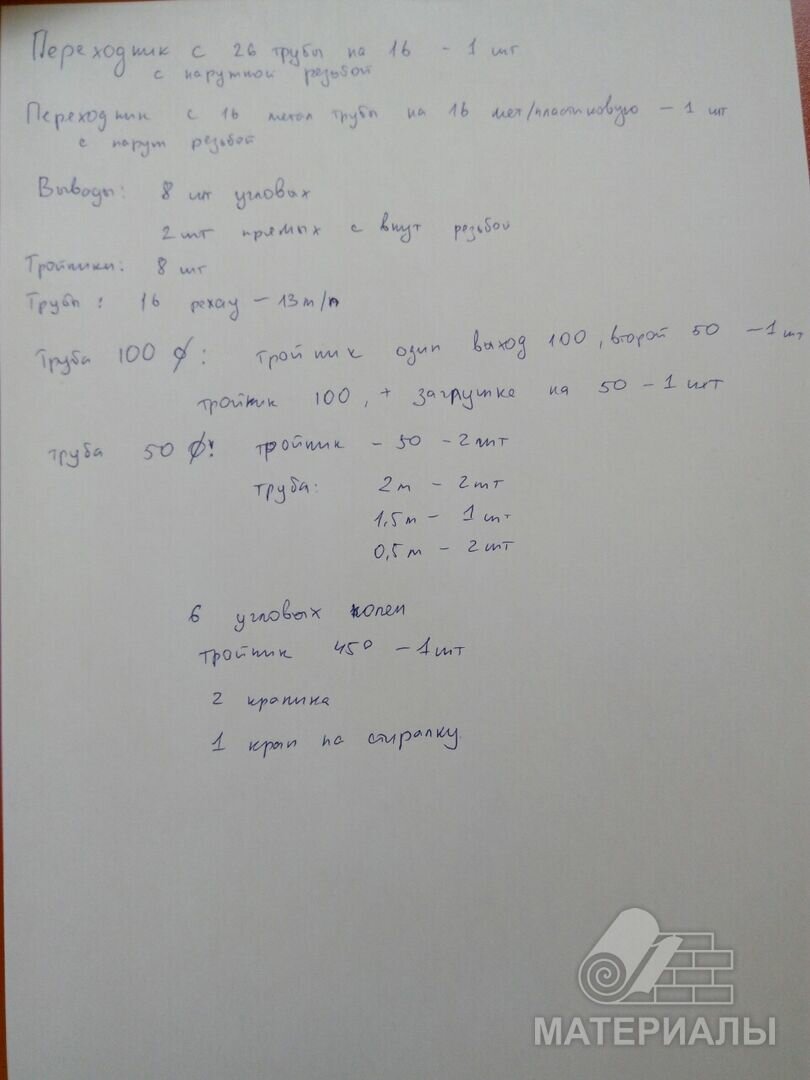 Переходник с 26 трубы на 16 - 1 шт
с наружной резьбой
Переходник с 16 метал трубы на 16 мет/пластиковую - 1 шт
с наруж резьбой
Выводы: 8 шт угловых
2 шт прямых с внут резьбой
Тройники: 8 шт
Трубы: 16 рехау - 13 м/п
Труба 100 ∅: тройник один выход 100, второй 50 - 1 шт
тройник 100, + заглушка на 50 - 1 шт
труба 50 ∅: тройник - 50 - 2 шт
труба: 2 м - 2 шт
1,5 м - 1 шт
0,5 м - 2 шт
6 угловых колен
тройник 45° - 1 шт
2 краника
1 кран на стиралку.
МАТЕРИАЛЫ